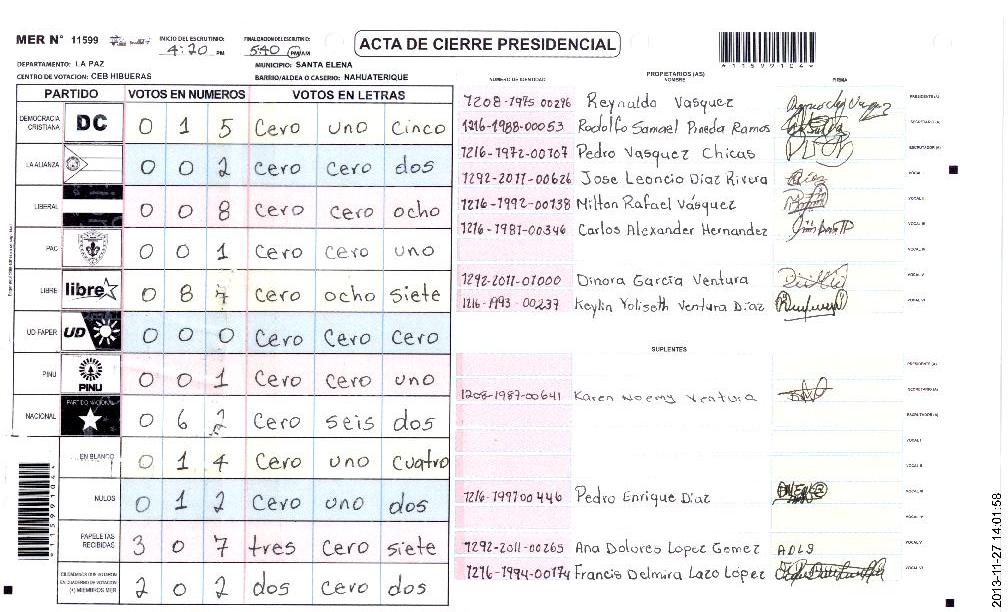 MER N° 11599
INICIO DEL ESCRUTINIO:
4:20 PM
FINALIZACION DEL ESCRUTINIO:
5:40 PM/AM
ACTA DE CIERRE PRESIDENCIAL
*11599104*
DEPARTAMENTO: LA PAZ
MUNICIPIO: SANTA ELENA
CENTRO DE VOTACION: CEB HIBUERAS
BARRIO/ALDEA O CASERIO: NAHUATERIQUE
PARTIDO VOTOS EN NUMEROS VOTOS EN LETRAS
DEMOCRACIA CRISTIANA DC 0 1 5 Cero uno cinco
LA ALIANZA 0 0 2 Cero Cero dos
LIBERAL 0 0 8 Cero cero ocho
PAC 0 0 1 Cero cero uno
LIBRE libre 0 8 7 Cero ocho siete
UD FAPER UD 0 0 0 Cero Cero cero
PINU PINU 0 0 1 Cero cero uno
NACIONAL PARTIDO NACIONAL 0 6 2 Cero seis dos
EN BLANCO 0 1 4 Cero uno cuatro
NULOS 0 1 2 Cero uno dos
PAPELETAS RECIBIDAS 3 0 7 tres Cero siete
CIUDADANOS QUE VOTARON EN CUADERNO DE VOTACION (+) MIEMBROS MER 2 0 2 dos Cero dos
*11599104*
PROPIETARIOS (AS)
NUMERO DE IDENTIDAD NOMBRE FIRMA
1208-1975 00296 Reynaldo Vasquez PRESIDENTE (A)
1216-1988-00053 Rodolfo Samael Pineda Ramos SECRETARIO (A)
1216-1972-00107 Pedro Vasquez Chicas ESCRUTADOR (A)
1292-2011-00626 Jose Leoncio Diaz Rivera VOCAL I
1216-1992-00138 Milton Rafael Vásquez VOCAL II
1216-1981-00346 Carlos Alexander Hernandez VOCAL III
VOCAL IV
1292-2011-01000 Dinora García Ventura VOCAL V
1216-1993-00237 Keylin Yolisoth Ventura Díaz VOCAL VI
SUPLENTES
PRESIDENTE (A)
1208-1987-00641 Karen Noemy Ventura SECRETARIO (A)
ESCRUTADOR (A)
VOCAL I
VOCAL II
1216-1997 00446 Pedro Enrique Díaz VOCAL III
VOCAL IV
1292-2011-00265 Ana Dolores Lopez Gomez ADLG VOCAL V
1216-1994-00174 Francis Delmira Lazo López VOCAL VI
2013-11-27 14:01:58